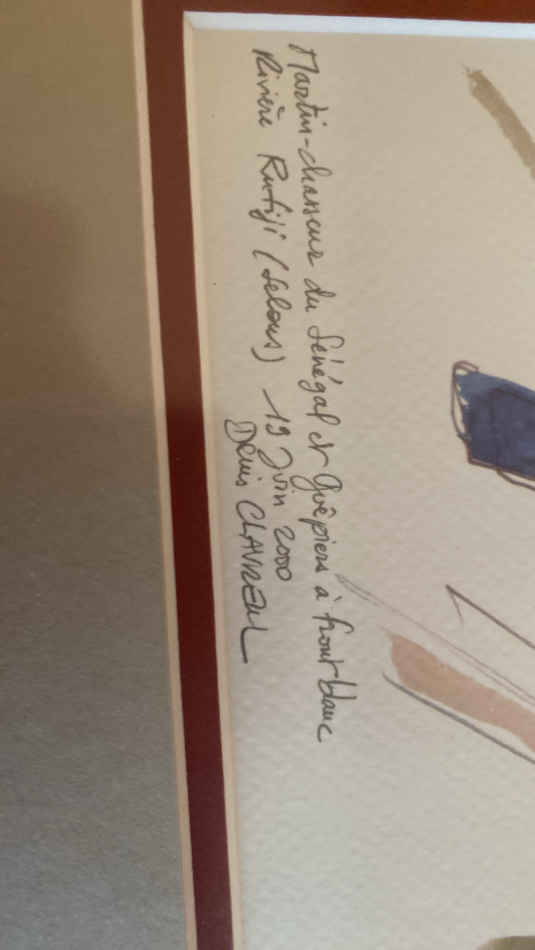 Martin-chasseur du Sénégal et Guêpiers à front blanc
Rivière Rufiji (Selous) 19 Juin 2000
Denis CLAVREUL